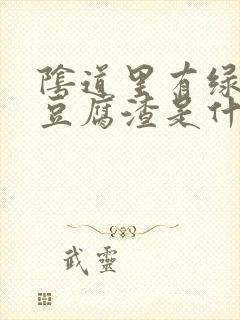 陰道里有绿
豆腐渣是什
武靈